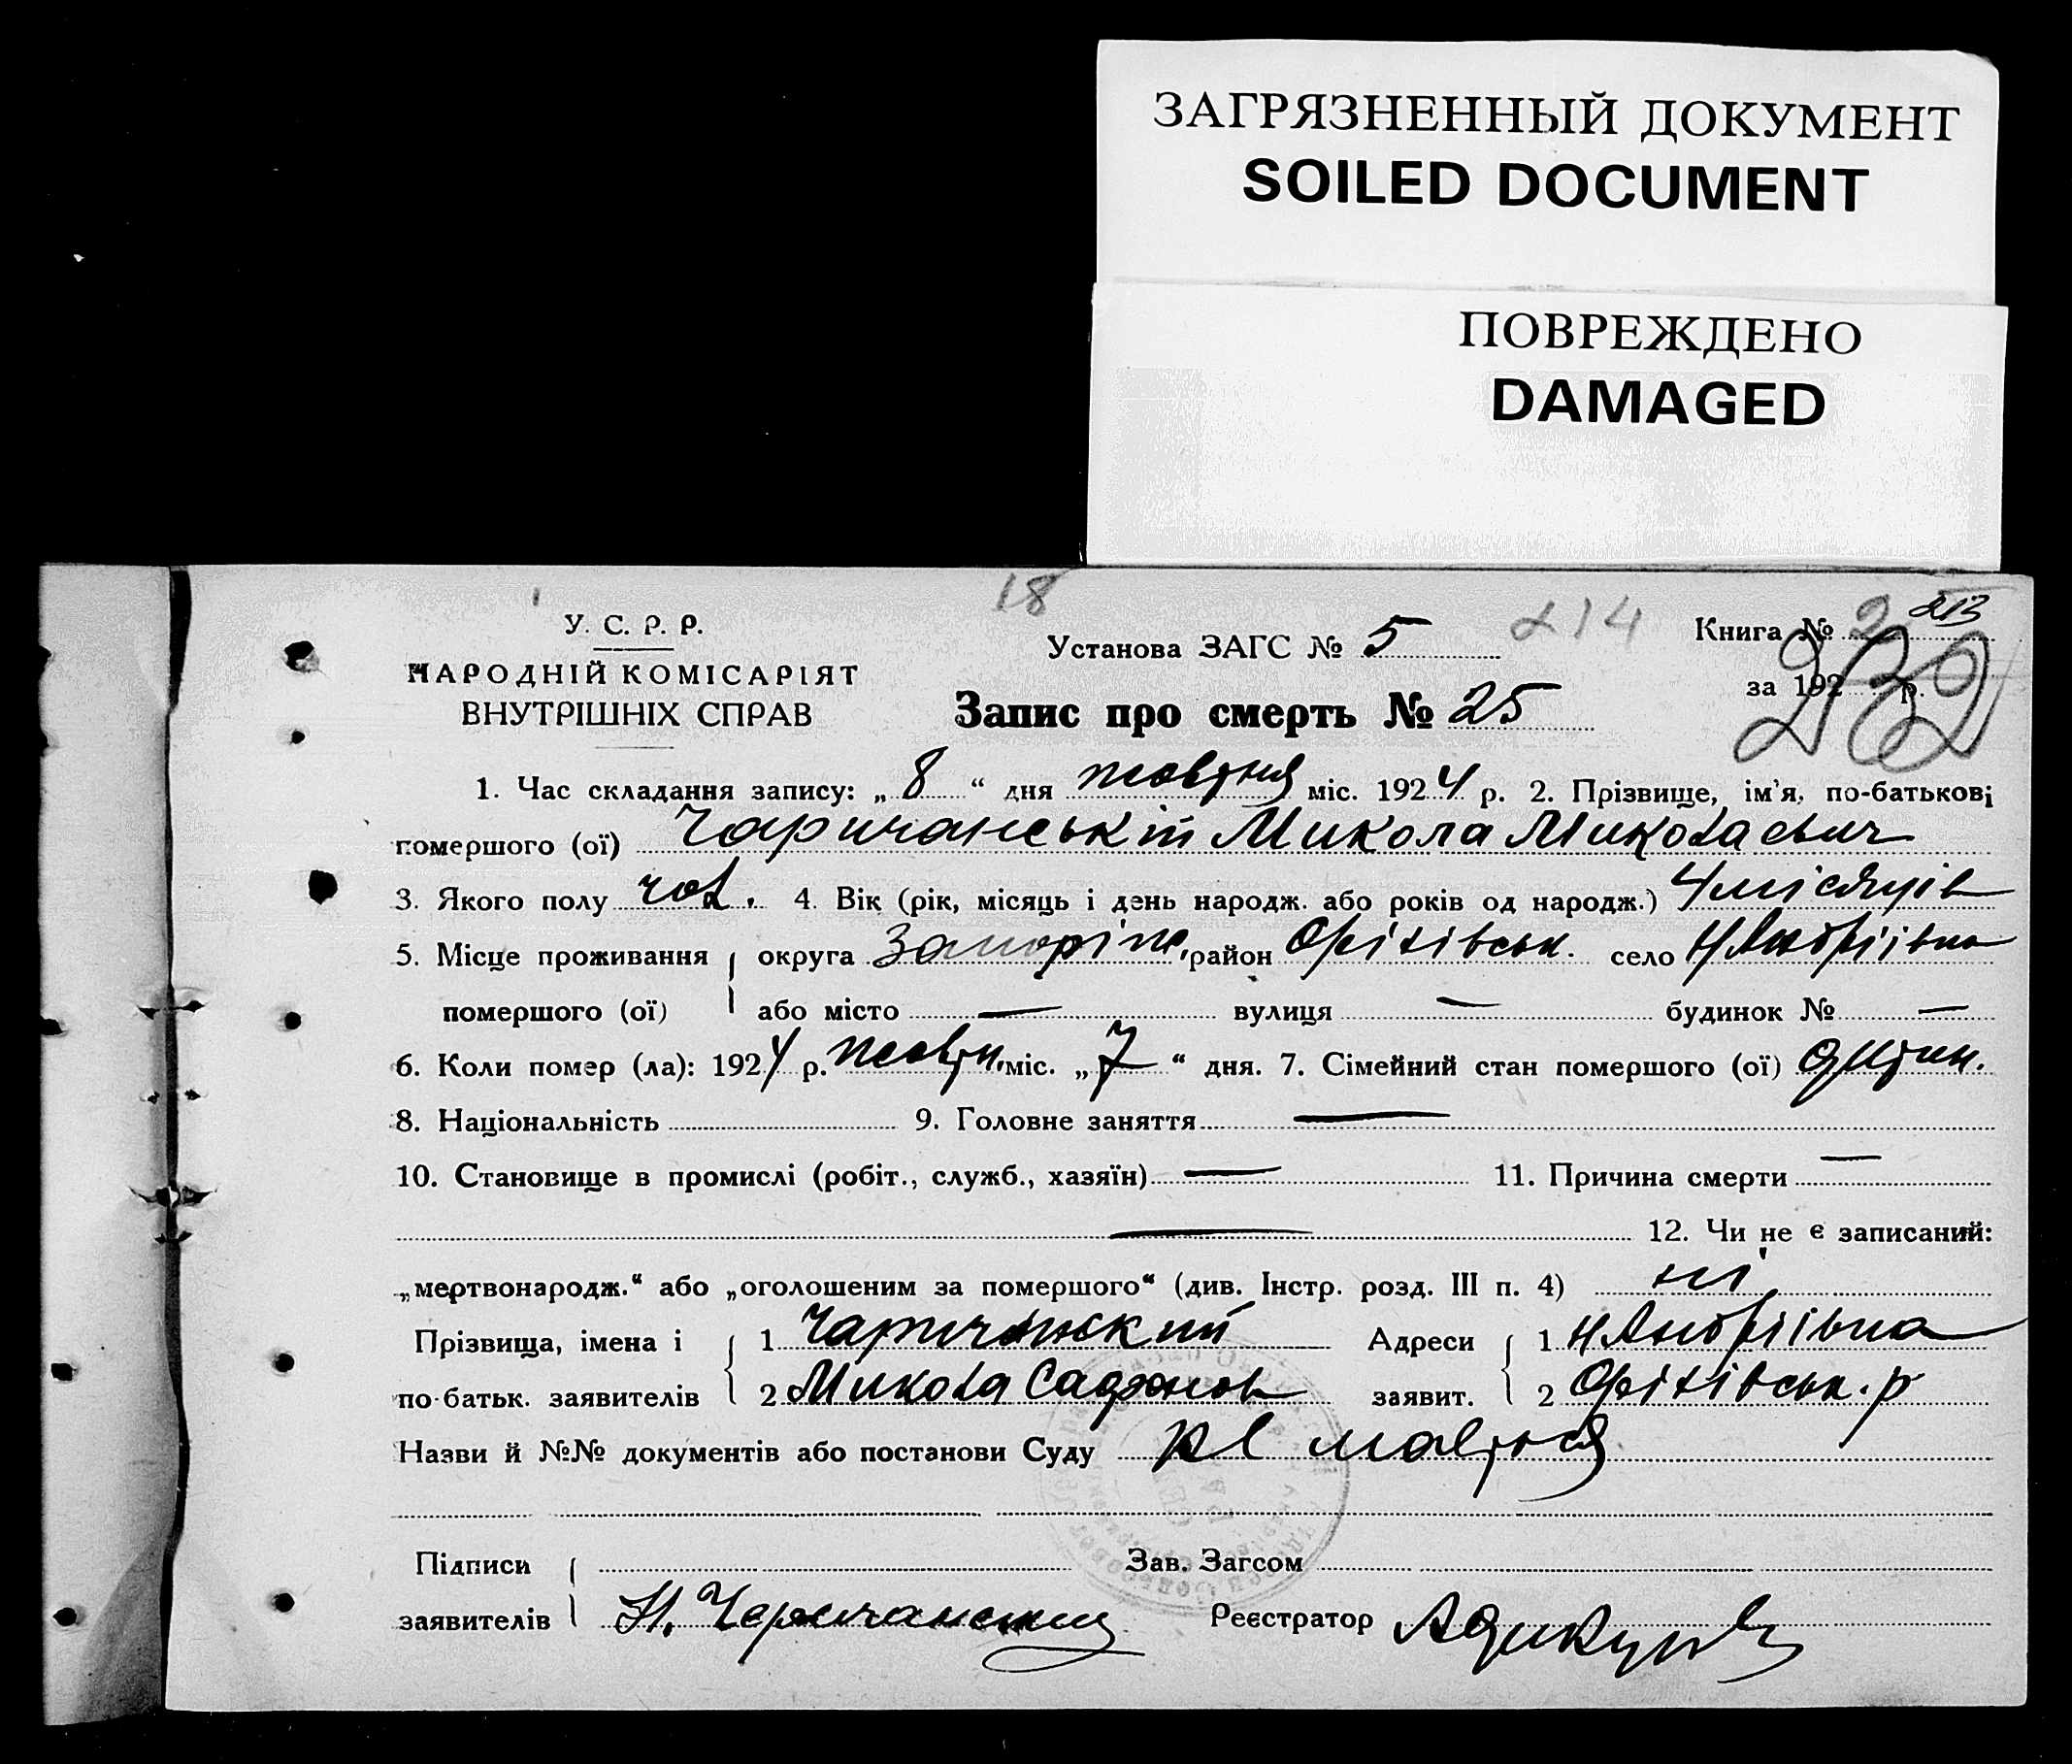 ЗАГРЯЗНЕННЫЙ ДОКУМЕНТ
SOILED DOCUMENT
ПОВРЕЖДЕНО
DAMAGED
18
У. С. Р. Р.
Установа ЗАГС № 5 214 Книга № 2 213
НАРОДНІЙ КОМІСАРІЯТ
за 192 р. 232
ВНУТРІШНІХ СПРАВ
Запис про смерть № 25
1. Час складання запису: „ 8 “ дня жовтня міс. 1924 р. 2. Прізвище, ім'я, по-батькові
помершого (ої) Чаричанський Микола Миколаевич
3. Якого полу чол. 4. Вік (рік, місяць і день народж. або років од народж.) 4 місяців
5. Місце проживання округа Запоріж. район Оріхівськ. село Н Андріівка
помершого (ої) або місто — вулиця — будинок № —
6. Коли помер (ла): 1924 р. жовтн. міс. „ 7 “ дня. 7. Сімейний стан помершого (ої) дитин.
8. Національність 9. Головне заняття —
10. Становище в промислі (робіт., служб., хазяїн) — 11. Причина смерти —
— 12. Чи не є записаний:
„мертвонародж.“ або „оголошеним за помершого“ (див. Інстр. розд. III п. 4) ні
Прізвища, імена і 1 Чаричанский Адреси 1 Н Андріівка
по-батьк. заявителів 2 Микола заявит. 2 Оріхівськ. р
Назви й №№ документів або постанови Суду
Підписи Зав. Загсом
заявителів Н. Чаричанский Реєстратор